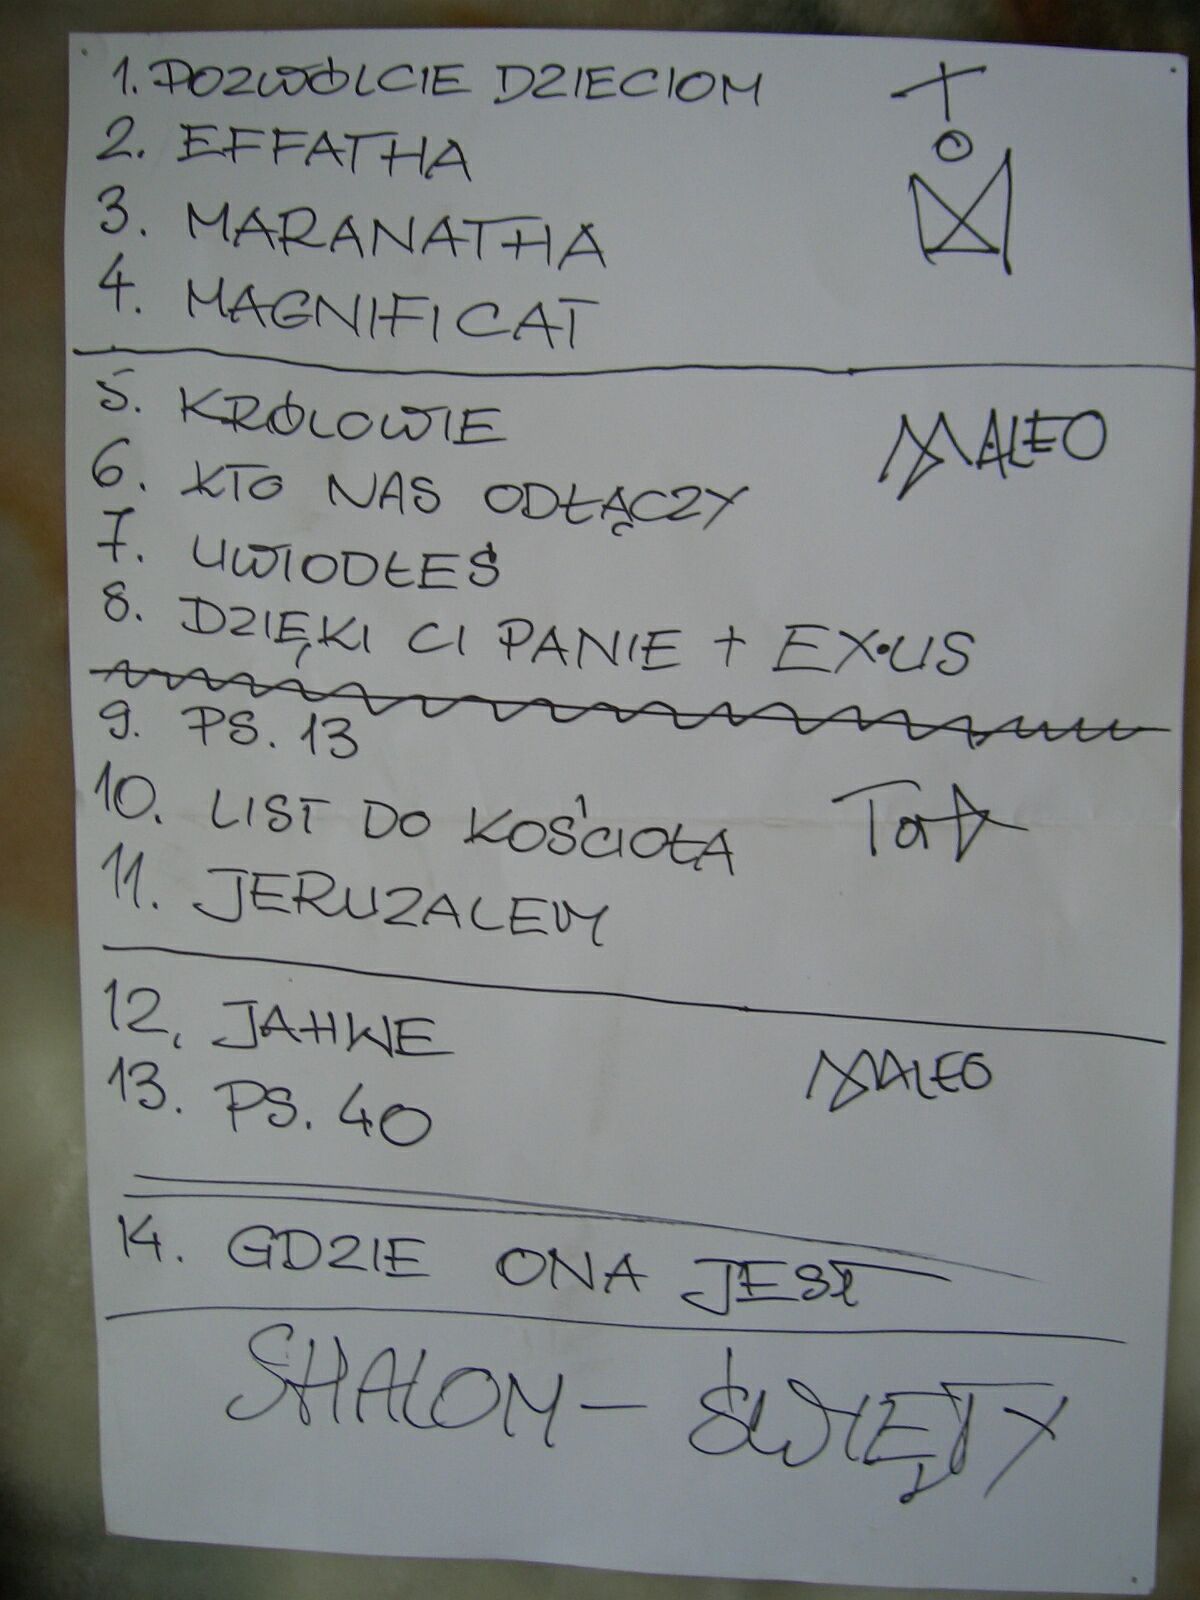 1. POZWÓLCIE DZIECIOM
2. EFFATHA
3. MARANATHA
4. MAGNIFICAT
5. KRÓLOWIE
MALEO
6. KTO NAS ODŁĄCZY
7. UWIODŁEŚ
8. DZIĘKI CI PANIE + EX•US
9. PS. 13
10. LIST DO KOŚCIOŁA
11. JERUZALEM
12. JAHWE
MALEO
13. PS. 40
14. GDZIE ONA JEST
SHALOM – ŚWIĘTY